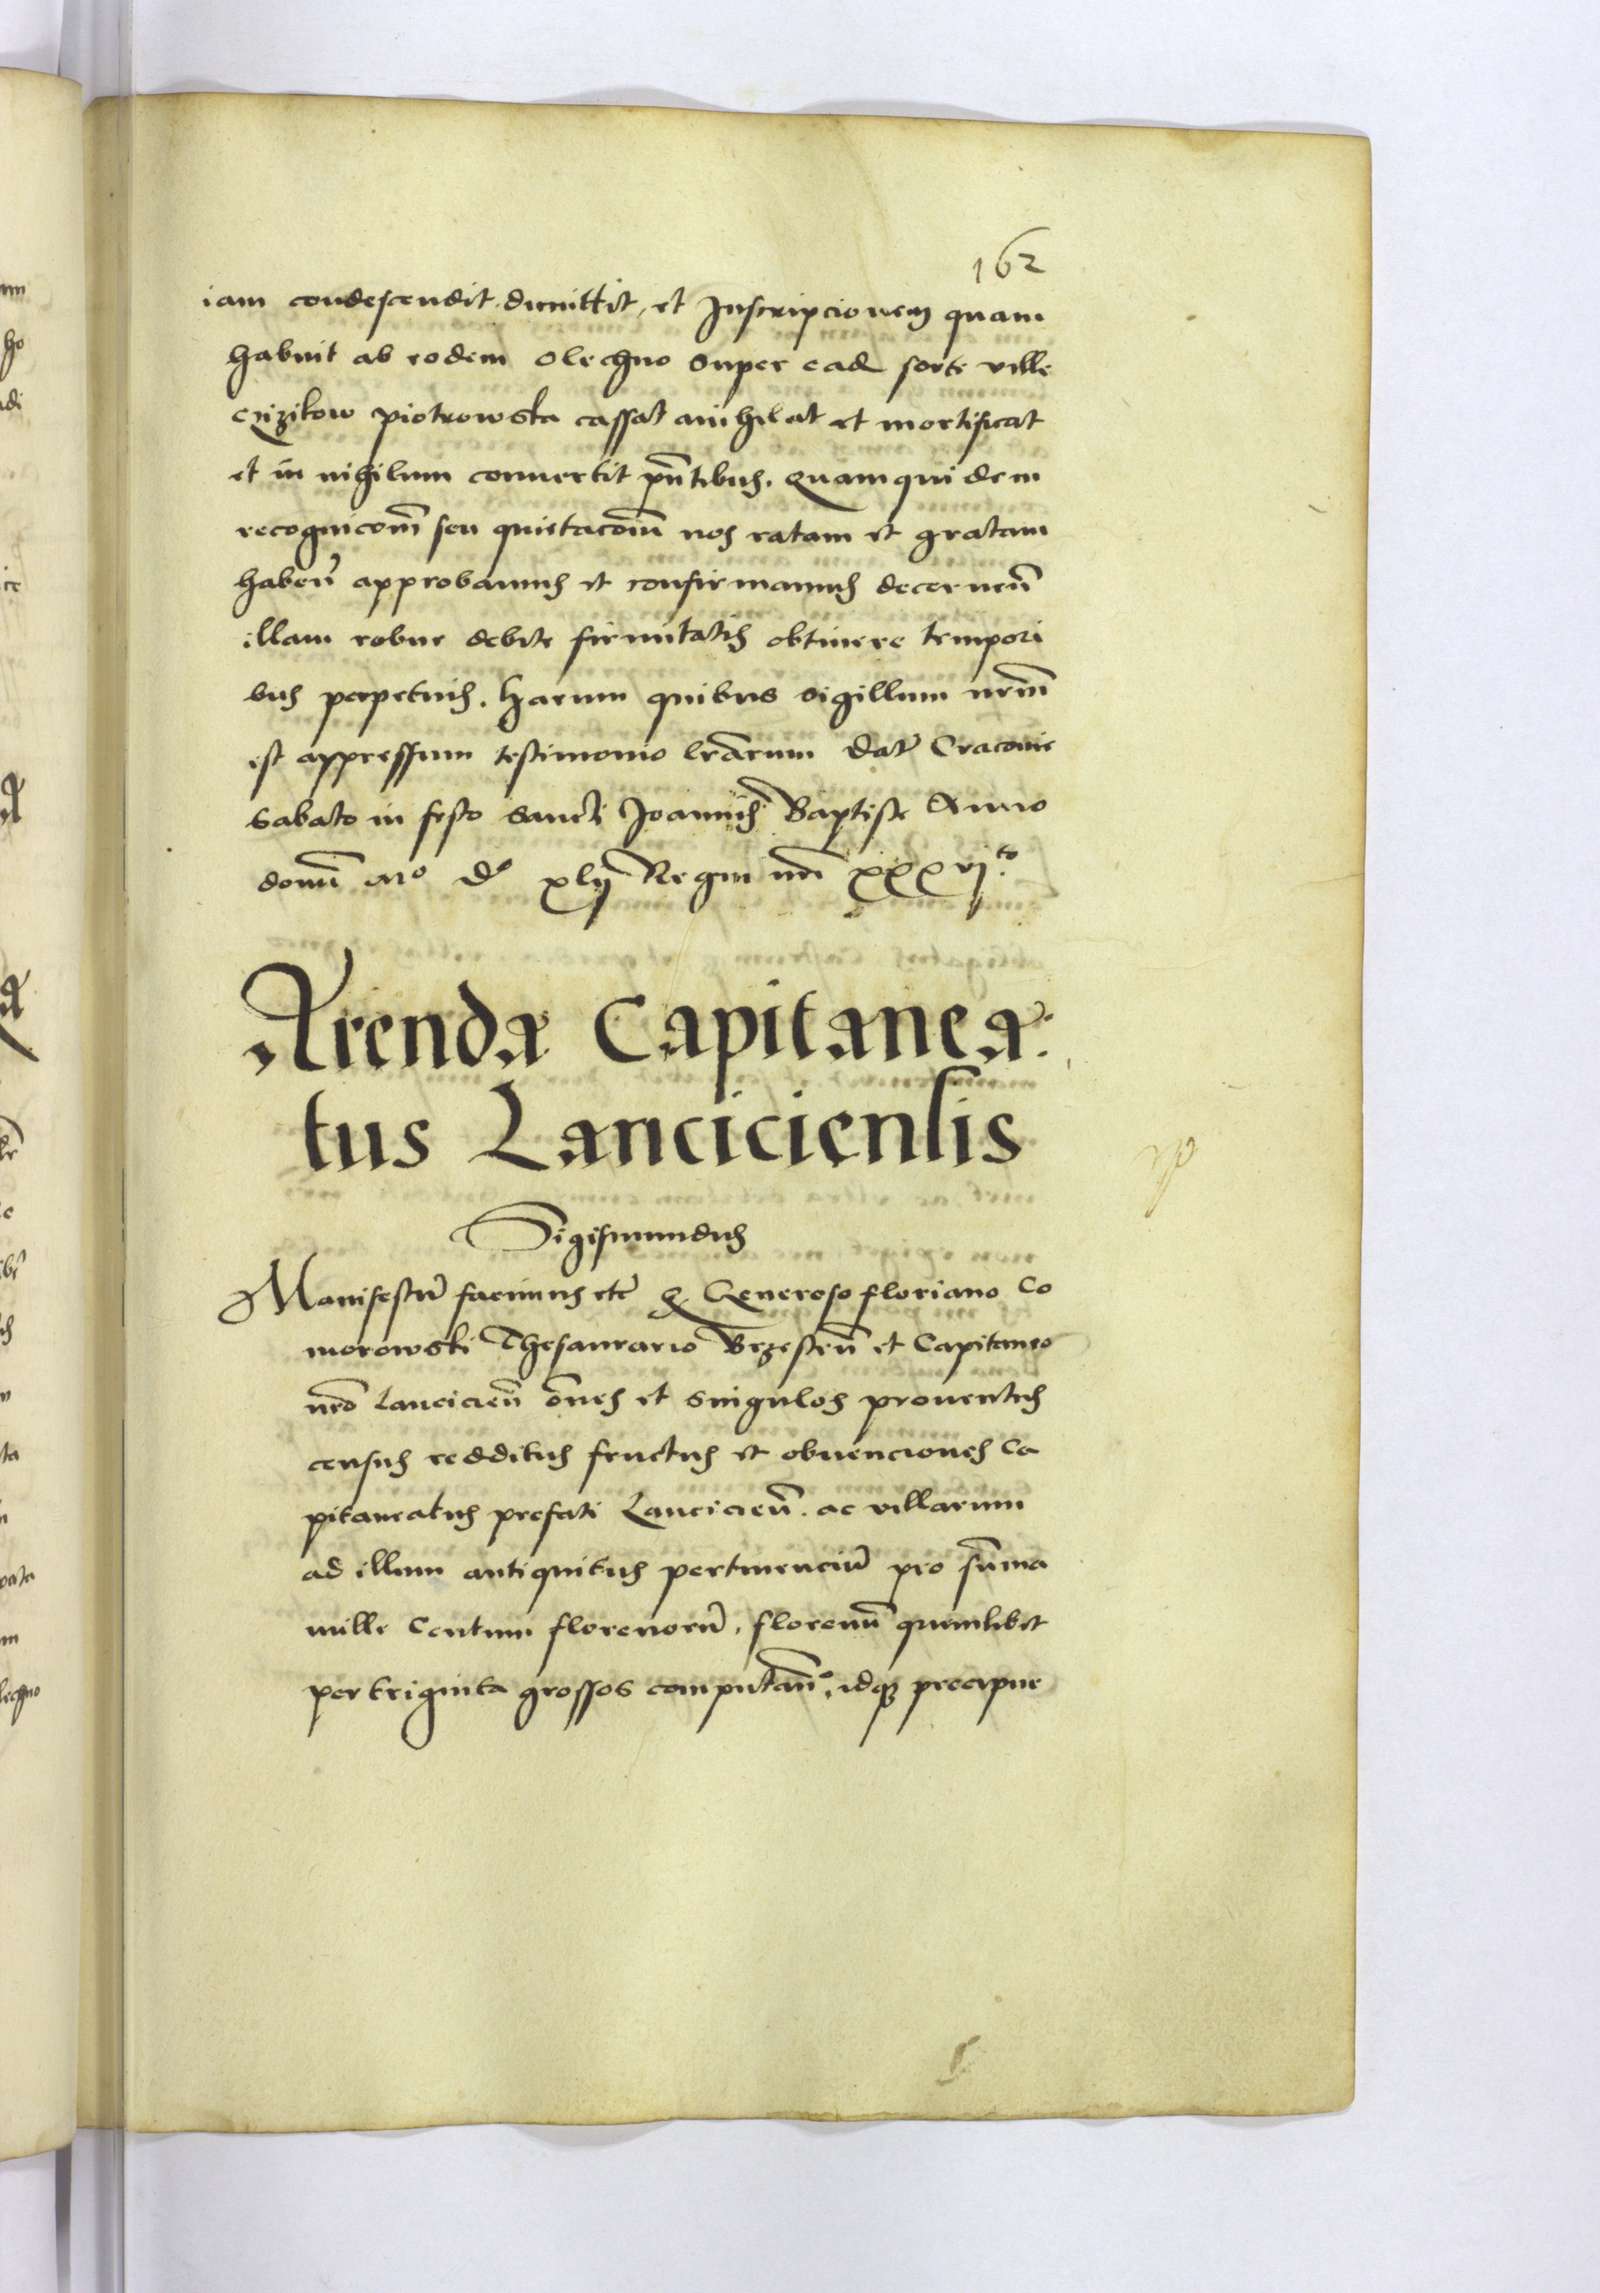 162
iam condescendit dimittit, et Inscripcionem quam
habuit ab eodem olechno super ead sorte ville
piotrowska cassat anihilat et mortificat
et in nihilum conuertit pñtibus. Quamquidem
recognicoem̃ seu quietacoem̃ nos ratam et gratam
habeñ approbamus et confirmamus decerneñ
illam robur debite firmitatis obtinere tempori
bus perpetuis. harum quibus sigillum nrm̃
est appressum testimonio lrãrum Dat̃ Cracouie
Sabato in festo Sancti Joannis Baptiste Anno
domĩ Mo Do xlij Regni nrĩ xxxvjto.
Arenda Capitanea
tus Lanciciensis
Sigismundus
Manifestũ facimus etc̃ Q Generoso floriano Co
morowski Thesaurario Brzesteñ et Capitaneo
nrõ Lancicieñ oẽs et singulos prouentus
census redditus fructus et obuenciones Ca
pitaneatus prefati Lancicieñ. ac villarum
ad illum antiquitus pertinenciũ pro sũma
mille Centum florenorũ, florenũ quemlibet
per triginta grossos computañ. idq precipue